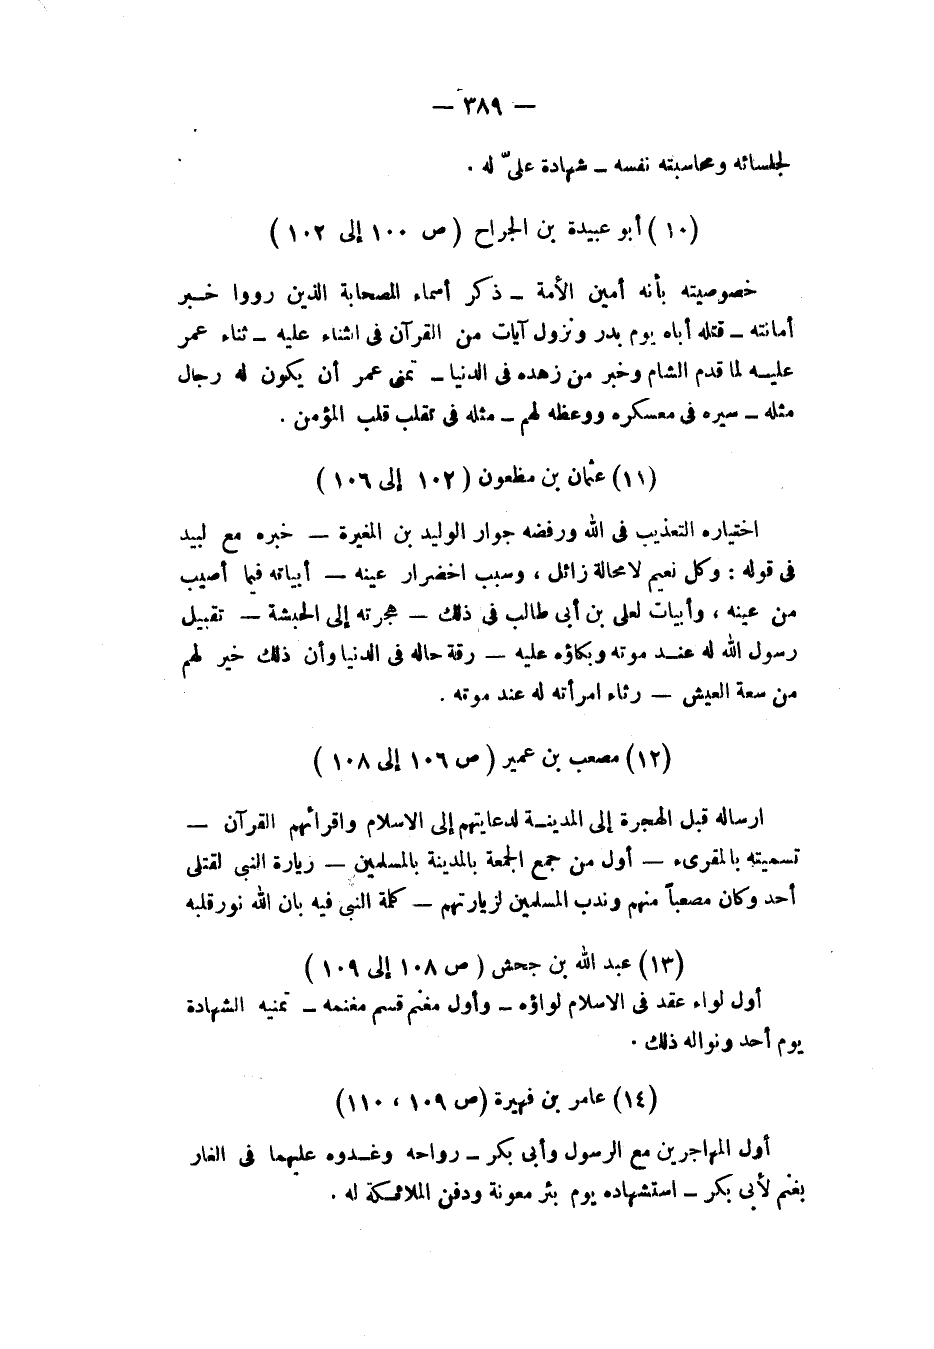 — ٣٨٩ —
لجلسائه ومحاسبته نفسه ـ شهادة علىّ له .
(١٠) أبو عبيدة بن الجراح ( ص ١٠٠ إلى ١٠٢ )
خصوصيته بأنه أمين الأمة ـ ذكر أسماء الصحابة الذين رووا خبر
أمانته ـ قتله أباه يوم بدر ونزول آيات من القرآن فى الثناء عليه ـ ثناء عمر
عليه لما قدم الشام وخبر من زهده فى الدنيا ـ تمنى عمر أن يكون له رجال
مثله ـ سيره فى معسكره ووعظه لهم ـ مثله فى تقلب قلب المؤمن .
(١١) عثمان بن مظعون ( ١٠٢ إلى ١٠٦ )
اختياره التعذيب فى الله ورفضه جوار الوليد بن المغيرة — خبره مع لبيد
فى قوله : وكل نعيم لامحالة زائل ، وسبب اخضرار عينه — أبياته فيما أصيب
من عينه ، وأبيات لعلى بن أبى طالب فى ذلك — هجرته إلى الحبشة — تقبيل
رسول الله له عند موته وبكاؤه عليه — رقة حاله فى الدنيا وأن ذلك خير لهم
من سعة العيش — رثاء امرأته له عند موته .
(١٢) مصعب بن عمير ( ص ١٠٦ إلى ١٠٨ )
ارساله قبل الهجرة إلى المدينة لدعايتهم إلى الاسلام واقرائهم القرآن —
تسميته بالمقرىء — أول من جمع الجمعة بالمدينة بالمسلمين — زيارة النبى لقتلى
أحد وكان مصعباً منهم وندب المسلمين لزيارتهم — كلمة النبى فيه بان الله نور قلبه
(١٣) عبد الله بن جحش ( ص ١٠٨ إلى ١٠٩ )
أول لواء عقد فى الاسلام لواؤه ـ وأول مغنم قسم مغنمه ـ تمنيه الشهادة
يوم أحد ونواله ذلك .
(١٤) عامر بن فهيرة (ص ١٠٩ ، ١١٠)
أول المهاجرين مع الرسول وأبى بكر ـ رواحه وغدوه عليهما فى الغار
بغنم لأبى بكر ـ استشهاده يوم بئر معونة ودفن الملائكة له .